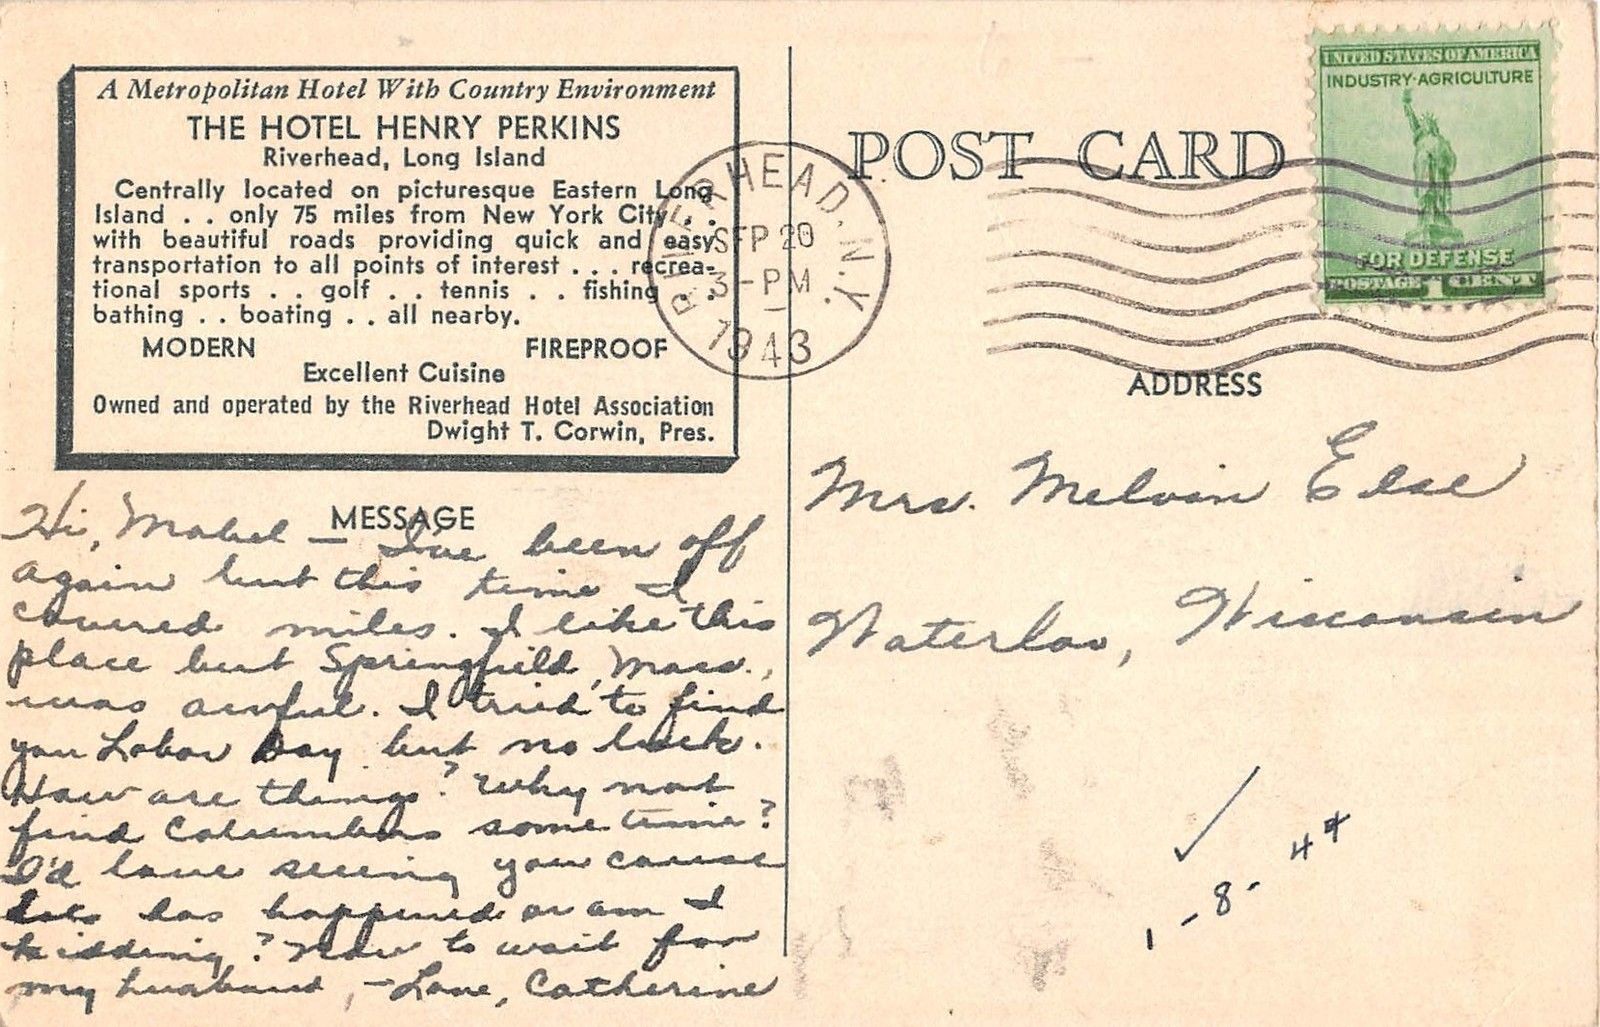 A Metropolitan Hotel With Country Environment
THE HOTEL HENRY PERKINS
Riverhead, Long Island
Centrally located on picturesque Eastern Long
Island . . only 75 miles from New York City . .
with beautiful roads providing quick and easy
transportation to all points of interest . . . recrea-
tional sports . . golf . . tennis . . fishing . .
bathing . . boating . . all nearby.
MODERN FIREPROOF
Excellent Cuisine
Owned and operated by the Riverhead Hotel Association
Dwight T. Corwin, Pres.
MESSAGE
Hi, Mabel — I've been off
again but this time I
covered miles. I like this
place but Springfield, Mass.,
was awful. I tried to find
you Labor Day but no luck.
How are things? Why not
find Columbus some time?
I'd love seeing you cause
lots has happened or am I
kidding? Now to wait for
my husband, - Love, Catherine
RIVERHEAD, N.Y.
SEP 20
3 - PM
1943
POST CARD
UNITED STATES OF AMERICA
INDUSTRY·AGRICULTURE
FOR DEFENSE
POSTAGE 1 CENT
ADDRESS
Mrs. Melvin Else
Waterloo, Wisconsin
1-8-44